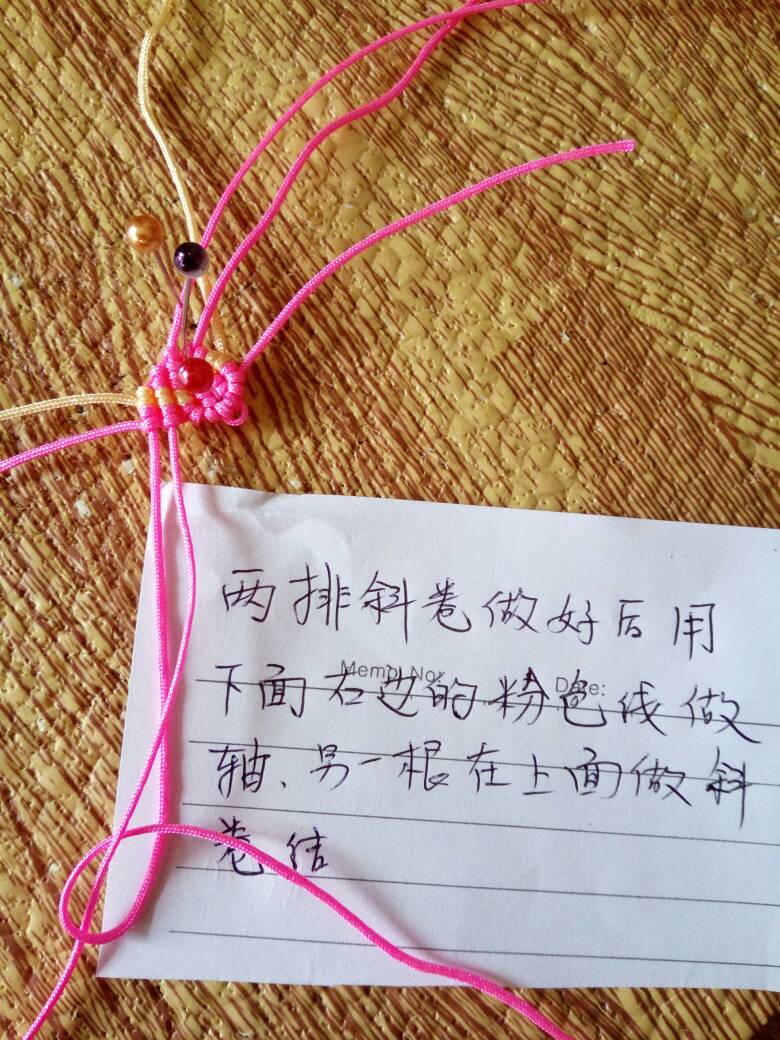 两排斜卷做好后用
Memo No.
Date:
下面右边的粉色线做
轴、另一根在上面做斜
卷结